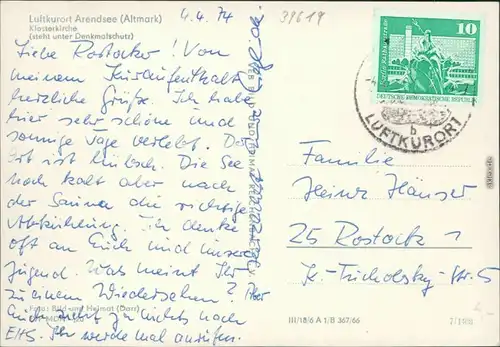 Luftkurort Arendsee (Altmark)
Klosterkirche
(steht unter Denkmalschutz)
4.4.74
39619
Liebe Rostocker! Von
meinem Kuraufenthalt
herzliche Grüße. Ich habe
hier sehr schöne und
sonnige Tage verlebt. Der
Ort ist hübsch. Die See
noch kalt aber nach
der Sauna die richtige
Abkühlung. Ich denke
oft an Euch und unsere
Jugend. Was meint Ihr
zu einem Wiedersehen? Aber
nach
EHS. Ihr werde mal anrufen.
Foto: Bild und Heimat (Darr)
10
DEUTSCHE DEMOKRATISCHE REPUBLIK
b
LUFTKURORT
Familie
Heinz Häuser
25 Rostock 1
K.-Tucholsky-Str. 5
III/18/6 A 1/B 367/66